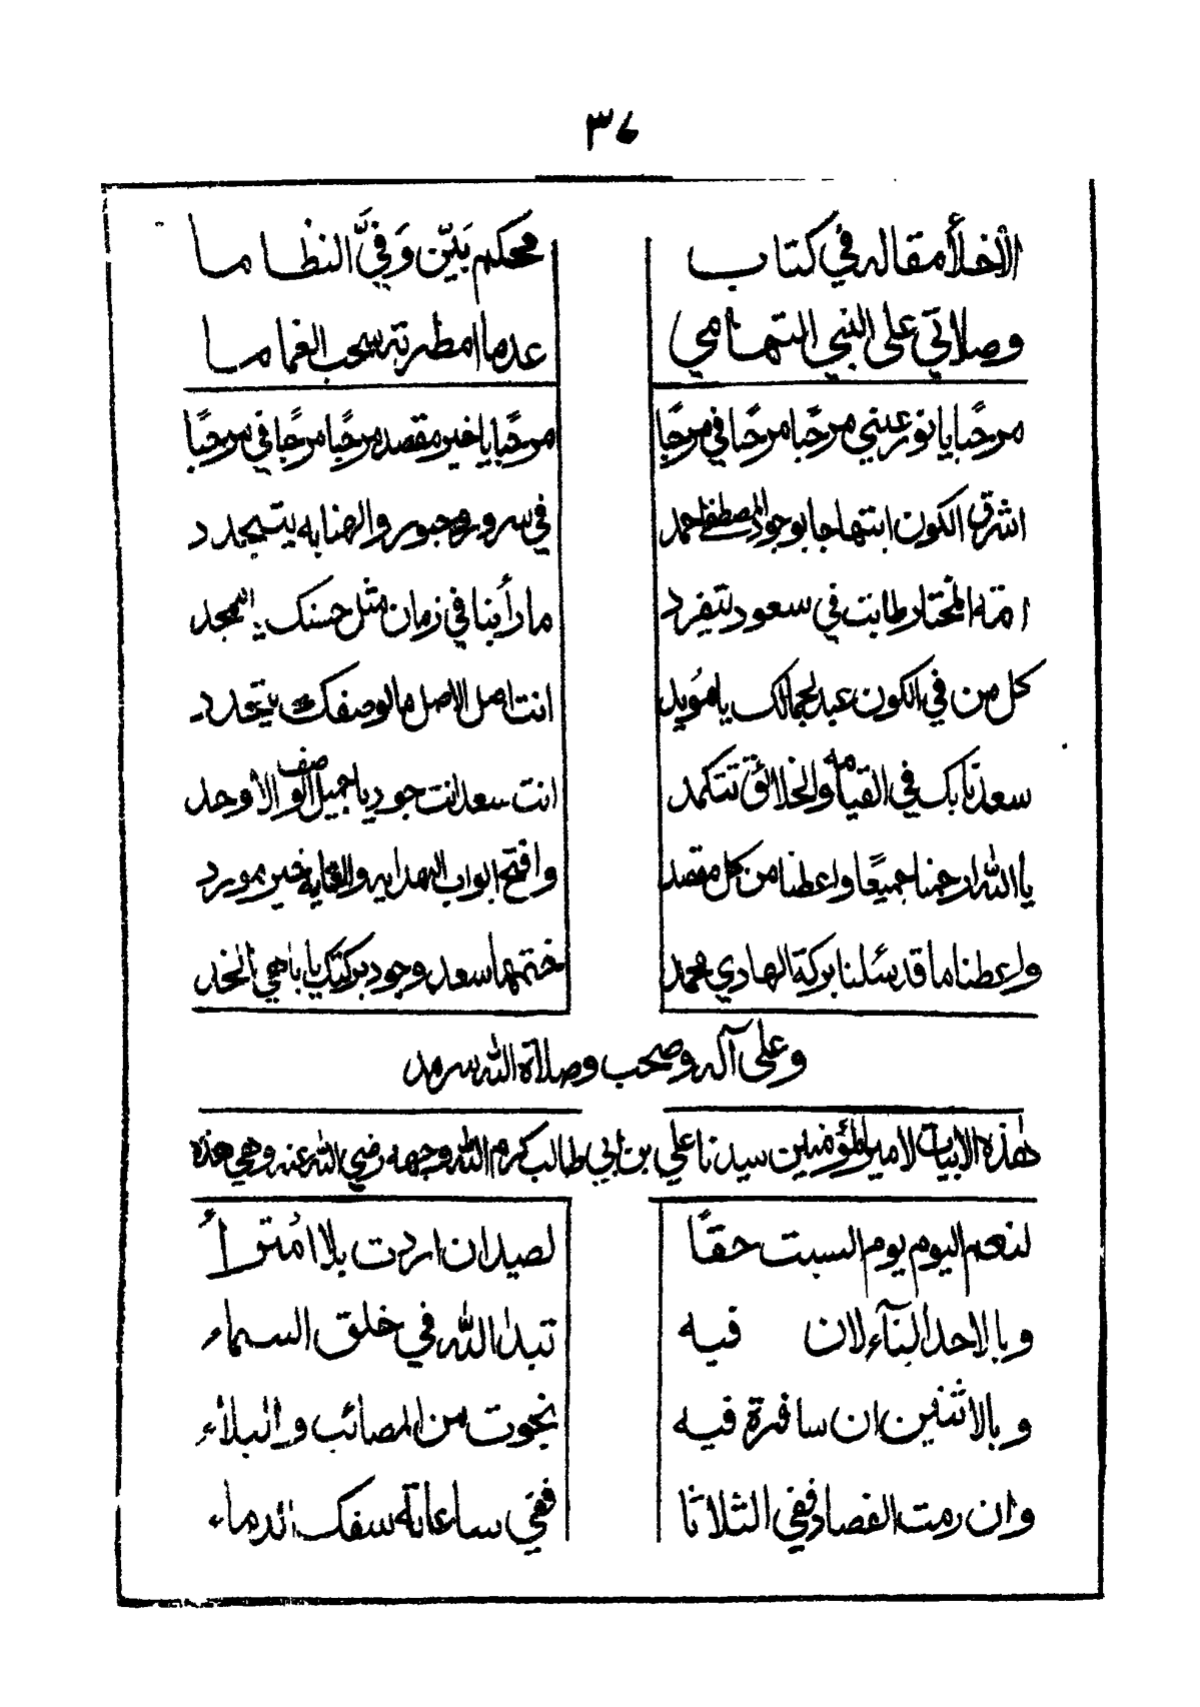 ٣٧
الأخلأ مقاله في كتاب محكم بَيّن وَفيَّ النظاما
وصلاتي على النبي التهامي عدما امطرته سحب الغماما
مرحبًا يا نور عيني مرحبًا مرحبًا في مرحبًا مرحبًا يا خير مقصد مرحبًا مرحبًا في مرحبًا
اشرق الكون ابتهاجا بوجود المصطفى احمد في سرور وحبور والهنا به يتجدد
امة المختار طابت في سعود تتفرد ما رأينا في زمان مثل حسنك يا الممجد
كل من في الكون عبد لجمالك يا مؤيد انت اصل الاصل مالوصفك يتحدد
سعدنا بك في القيامه والخلائق تتكمد انت سعد انت جود يا جميل الوصف الأوحد
يا الله ارحمنا جميعًا واعطنا من كل مقصد وافتح ابواب الهدايه والعنايه خير مورد
واعطنا ما قد سئلنا بركة الهادي محمد ختمها سعد وجود بركتك يا باهي الخد
وعلى آله وصحب وصلاة الله سرمد
هذه الابيات لامير المؤمنين سيدنا علي بن ابي طالب كرم الله وجهه رضي الله عنه وهي هذه
لنعم اليوم يوم السبت حقًا لصيد ان اردت بلا امُترأ
وبالاحد البنآء لان فيه تبدا الله في خلق السماء
وبالاثنين ان سافرة فيه نجوت من المصائب والبلاء
وان رمت الفصاد ففي الثلاثا ففي ساعاته سفك الدماء